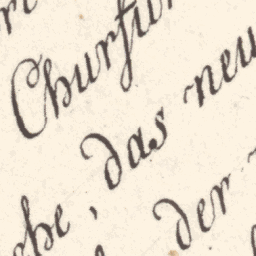 Churfür
he, das neu
der